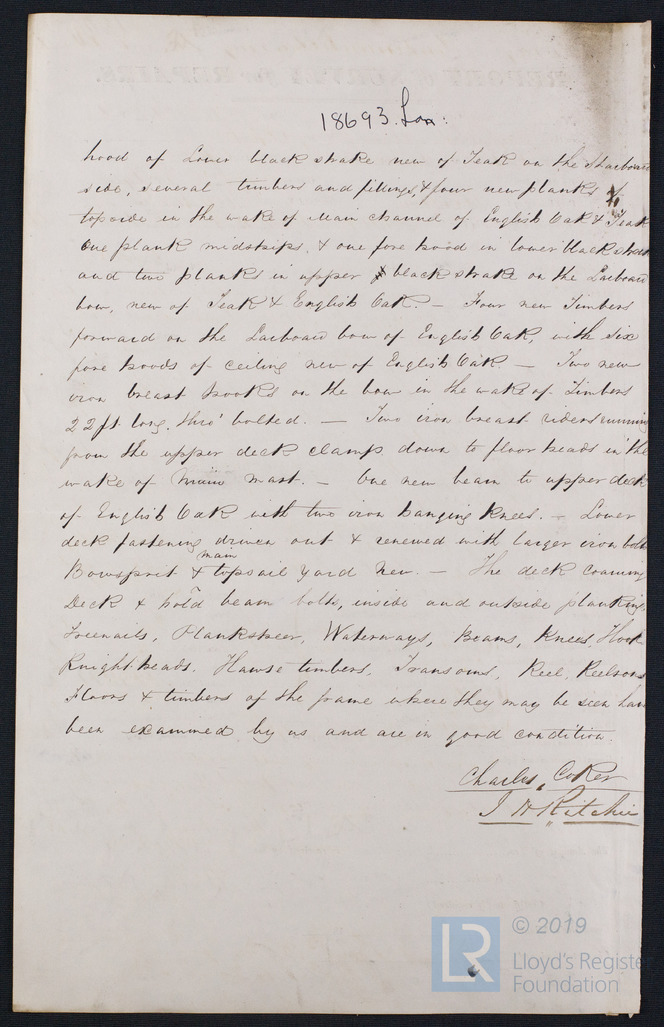 18693 Lon:
hood of Lower black strake new of Teak on the Starboard
side, several timbers and fillings, & four new planks of
topside in the wake of Main channel of English Oak & Teak
One plank midships, & one fore hood in lower black strake
and two planks in upper black strake on the Larboard
bow, new of Teak & English Oak. — Four new Timbers
forward on the Larboard bow of English Oak, with six
fore hoods of ceiling new of English Oak. — Two new
iron breast hooks on the bow in the wake of Timbers
22 ft long, thro' bolted. — Two iron breast riders running
from the upper deck clamp down to floor heads in the
wake of mast. — One new beam to upper deck
of English Oak with two iron hanging knees. — Lower
deck fastening driven out & renewed with larger iron bolts
Bowsprit & main topsail yard new. — The deck coaming
Deck & hold beam bolts, inside and outside planking
Treenails, Planksheer, Waterways, Beams, Knees, Hook
Knightheads, Hawse timbers, Transoms, Keel, Keelsons
Floors & timbers of the frame where they may be seen have
been examined by us and are in good condition.
Charles Coker
J W Ritchie
LR
© 2019
Lloyd's Register
Foundation